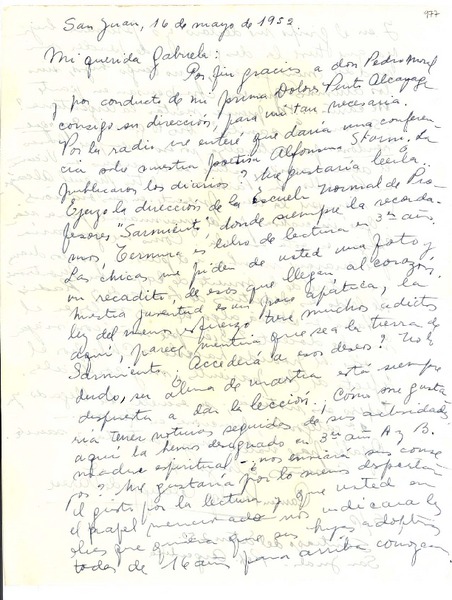 977
San Juan, 16 de mayo de 1952.
Mi querida Gabriela:
Por fin gracias a don Pedro
y por conducto de mi prima Dolores Pinto Alcayaga
consigo su dirección, para mí tan necesaria.
Por la radio me enteré que daría una conferen-
cia sobre nuestra poetisa Alfonsina Storni. ¿La
publicaron los diarios? Me gustaría leerla.
Ejerzo la dirección de la Escuela Normal de Pro-
fesores "Sarmiento" donde siempre la recorda-
mos. Ternura es libro de lectura en 3er año.
Las chicas me piden de usted una foto y
un recadito, de esos que llegan al corazón,
nuestra juventud es un poco apática, la
ley del menor esfuerzo tiene muchos adictos
aquí, parece mentira que sea la tierra de
Sarmiento. ¿Accederá a esos deseos? No lo
dudo, su alma de maestra está siempre
dispuesta a dar la lección. ¡Cómo me gusta
ría tener noticias seguidas de sus actividades
aquí la hemos designado en 3er año A y B.
madre espiritual - ¿nos enviará sus conse
jos? Me gustaría por lo menos despertar
el gusto por la lectura y que usted en
el papel mencionado nos indicara
que quiera que sus hijas adoptivas
todas de 16 años para arriba conozcan